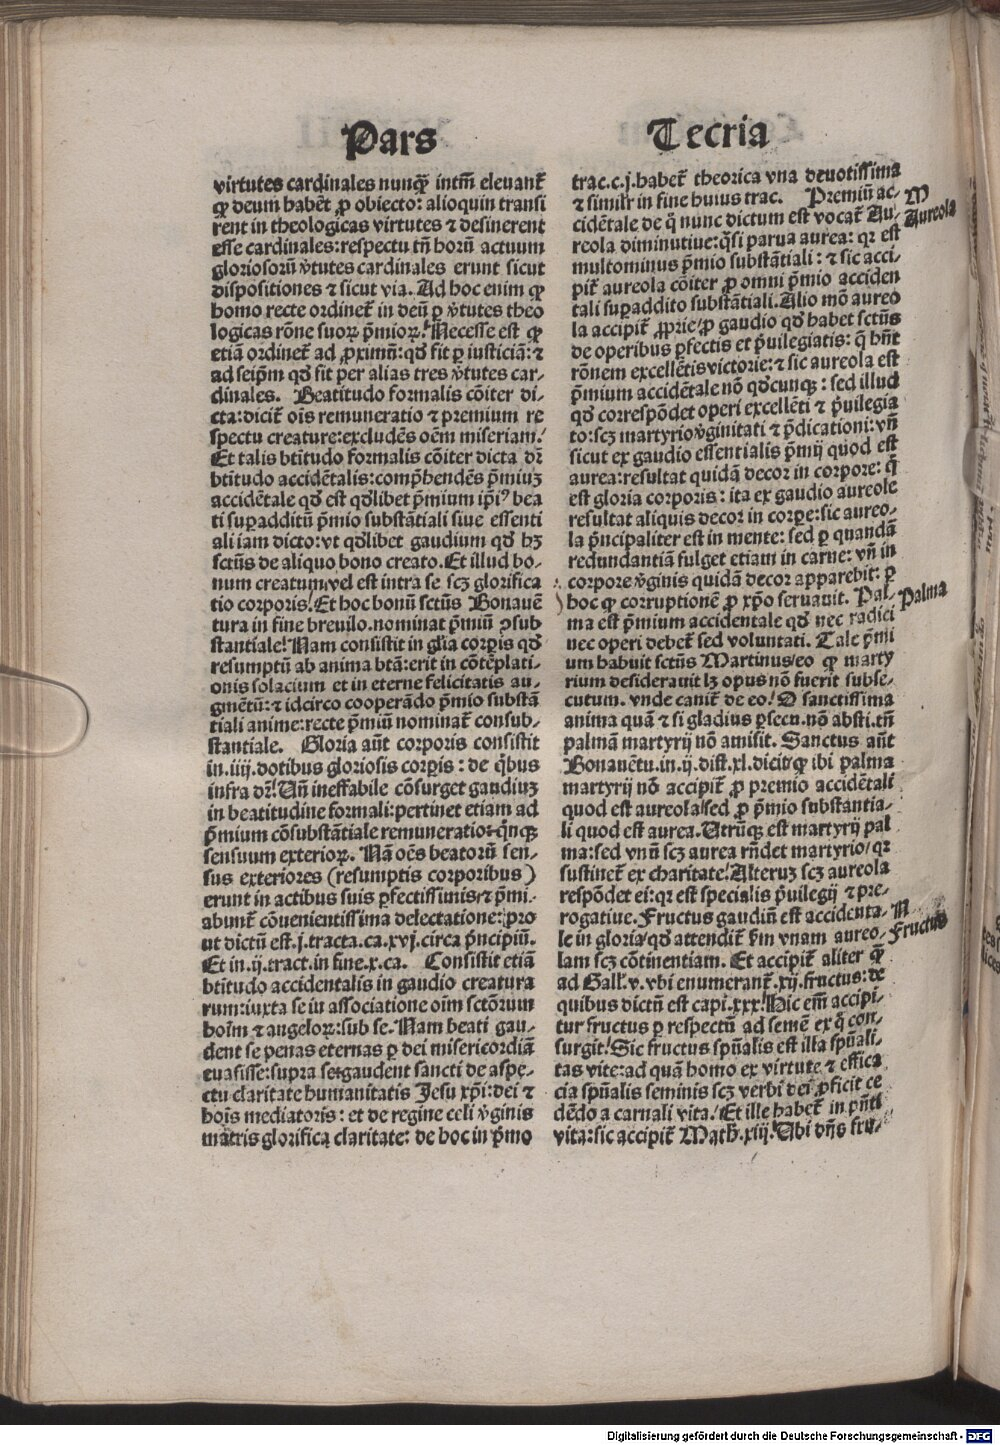 Pars
Tecria
virtutes cardinales nunqꝫ intm̄ eleuant᷑
ꝙ deum habēt ꝓ obiecto: alioquin transi
rent in theologicas virtutes ⁊ desinerent
esse cardinales: respectu tn̄ horū actuum
gloriosorū v̓tutes cardinales erunt sicut
dispositiones ⁊ sicut via. Ad hoc enim ꝙ
homo recte ordinet᷑ in deū ꝑ v̓tutes theo
logicas rōne suoꝝ p̄mioꝝ! Necesse est ꝙ
etiā ordinet᷑ ad ꝓximū: qd̓ fit ꝑ iusticiā: ⁊
ad seip̄m qd̓ fit per alias tres v̓tutes car-
dinales. Beatitudo formalis cōiter di-
cta: dicit᷑ oīs remuneratio ⁊ premium re
spectu creature: excludēs oēm miseriam!
Et talis btītudo formalis cōiter dicta dr̄
btītudo accidētalis: comp̄hendēs p̄miuꝫ
accidētale qd̓ est qd̓libet p̄mium ip̄iꝰ bea
ti suꝑadditū p̄mio substātiali siue essenti
ali iam dicto: vt qd̓libet gaudium qd̓ hꝫ
sctūs de aliquo bono creato. Et illud bo-
num creatum vel est intra se scꝫ glorifica
tio corporis! Et hoc bonū sctūs Bonauē
tura in fine breuilo. nominat p̄miū ↄsub
stantiale! Nam consistit in gl̓ia corꝑis qd̓
resumptū ab anima btā: erit in cōtēplati-
onis solacium et in eterne felicitatis au-
gmētū: ⁊ idcirco cooperādo p̄mio substā
tiali anime: recte p̄miū nominat᷑ consub-
stantiale. Gloria aūt corporis consistit
in .iiij. dotibus gloriosis corꝑis: de q̓bus
infra dr̄! Vn̄ ineffabile cōsurget gaudiuꝫ
in beatitudine formali: pertinet etiam ad
p̄mium cōsubstātiale remuneratio q̓nqꝫ
sensuum exterioꝝ. Nā oēs beatorū sen-
sus exteriores (resumptis corporibus)
erunt in actibus suis ꝑfectissimis ⁊ p̄mi-
abunt᷑ cōuenientissima delectatione: pro
ut dictū est .j. tracta. ca. xvj. circa p̄ncipiū.
Et in .ij. tract. in fine .x. ca. Consistit etiā
btītudo accidentalis in gaudio creatura
rum: iuxta se in associatione oīm sctōrum
hoīm ⁊ angeloꝝ: sub se. Nam beati gau-
dent se penas eternas ꝑ dei misericordiā
euasisse: supra se gaudent sancti de aspe-
ctu claritate humanitatis Jesu xp̄i: dei ⁊
hoīs mediatoris: et de regine celi v̓ginis
matris glorificą claritate: de hoc in p̄mo
trac. c. j. habet᷑ theorica vna deuotissima
⁊ simil̓r in fine huius trac. Premiū ac-
cidētale de q̓ nunc dictum est vocat᷑ Au-
reola diminutiue: q̓si parua aurea: qꝛ est
multominus p̄mio substātiali: ⁊ sic acci-
pit᷑ aureola cōiter ꝓ omni p̄mio acciden
tali suꝑaddito substātiali. Alio mō aureo
la accipit᷑ ꝓprie/ ꝓ gaudio qd̓ habet sctūs
de operibus ꝑfectis et p̓uilegiatis: q̄ hn̄t
rōnem excellētis victorie: ⁊ sic aureola est
p̄mium accidētale nō qd̓cunqꝫ: sed illud
qd̓ correspōdet operi excellēti ⁊ p̓uilegia
to: scꝫ martyrio v̓ginitati ⁊ p̄dicationi: vn̄
sicut ex gaudio essentialis p̄mij quod est
aurea: resultat quidā decor in corpore: q̓
est gloria corporis: ita ex gaudio aureole
resultat aliquis decor in corꝑe: sic aureo-
la p̓ncipaliter est in mente: sed ꝑ quandā
redundantiā fulget etiam in carne: vn̄ in
corpore v̓ginis quidā decor apparebit: ꝑ
hoc ꝙ corruptionē ꝓ xp̄o seruauit. Pal-
ma est p̄mium accidentale qd̓ nec radici
nec operi debet᷑ sed voluntati. Tale p̄mi
um habuit sctūs Martinus/ eo ꝙ marty
rium desiderauit lꝫ opus nō fuerit subse-
cutum. vnde canit᷑ de eo! O sanctissima
anima quā ⁊ si gladius ꝑsecu. nō absti. tn̄
palmā martyrij nō amisit. Sanctus aūt
Bonauētu. in .ij. dist. xl. dicit/ ꝙ ibi palma
martyrij nō accipit᷑ ꝓ premio accidētali
quod est aureola/ sed ꝓ p̄mio substantia-
li quod est aurea. Utrūqꝫ est martyrij pal
ma: sed vnū scꝫ aurea rn̄det martyrio/ qꝛ
sustinet᷑ ex charitate! Alteruꝫ scꝫ aureola
respōdet ei: qꝛ est specialis p̓uilegij ⁊ pre-
rogatiue. Fructus gaudiū est accidenta-
le in gloria/ qd̓ attendit᷑ fm vnam aureo-
lam scꝫ cōtinentiam. Et accipit᷑ aliter q̓
ad Gall. v. vbi enumerant᷑ .xij. fructus: de
quibus dictū est capi. xxx! Hic em̄ accipi-
tur fructus ꝑ respectū ad semē ex q̓ con-
surgit! Sic fructus spūalis est illa spūali-
tas vite: ad quā homo ex virtute ⁊ effica
cia spūalis seminis scꝫ verbi dei ꝓficit ce
dēdo a carnali vita! Et ille habet᷑ in pn̄ti
vita: sic accipit᷑ Math. xiij! Ubi dn̄s fru-
M
Aureola
Palma
N
Fructus
Digitalisierung gefördert durch die Deutsche Forschungsgemeinschaft - DFG